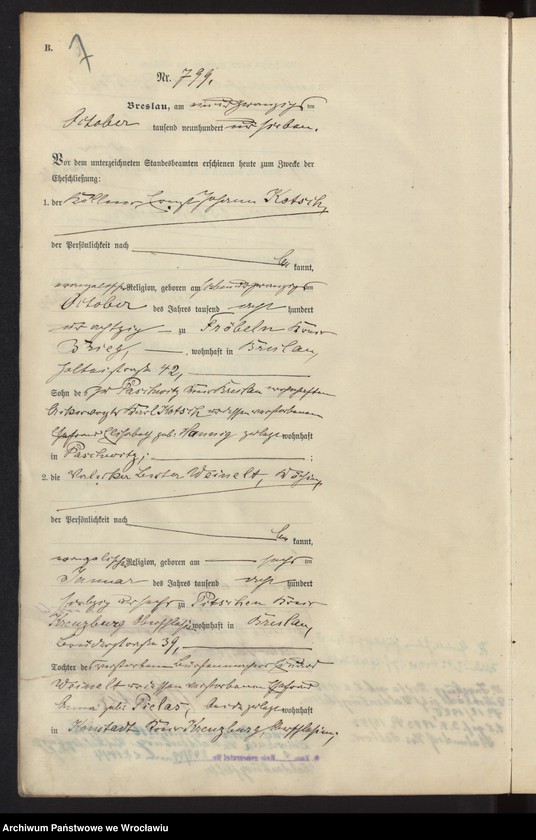 B.
7
Nr. 799.
Breslau, am einundzwanzigsten
October tausend neunhundert und sieben.
Vor dem unterzeichneten Standesbeamten erschienen heute zum Zwecke der
Eheschließung:
1. der Kellner Ernst Johann Kotsch,
der Persönlichkeit nach
be kannt,
evangelischer Religion, geboren am ten
October des Jahres tausend acht hundert
und achtzig zu Fröbeln Kreis
Brieg, , wohnhaft in Breslau,
straße 42,
Sohn des zu Paschwitz Kreis Breslau wohnhaften
Karl Kotsch und dessen verstorbenen
Ehefrau Elisabeth geb. Hannig zuletzt wohnhaft
in Paschwitz; ;
2. die Valeska Weinelt, Köchin,
der Persönlichkeit nach
be kannt,
evangelischer Religion, geboren am sechs ten
Januar des Jahres tausend acht hundert
siebzig und sechs zu Pitschen Kreis
Kreuzburg Oberschlesien, wohnhaft in Breslau,
straße 39,
Tochter des verstorbenen
Weinelt und dessen verstorbenen Ehefrau
Anna geb. Pielas, beide zuletzt wohnhaft
in Konstadt Kreis Kreuzburg, Oberschlesien;
Archiwum Państwowe we Wrocławiu